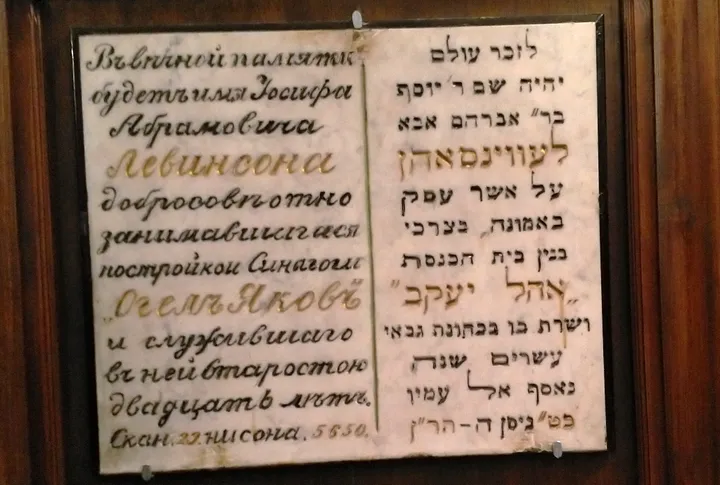 Въ вѣчной памяти
будетъ имя Іосифа
Абрамовича
Левинсона
добросовѣстно
занимавшагося
постройкой Синагоги
„Огель Яковъ"
и служившаго
въ ней старостою
двадцать лѣтъ.
Скон. 29. нисона. 5650.
לזכר עולם
יהיה שם ר' יוסף
בר" אברהם אבא
לעווינסאהן
על אשר עסק
באמונה בצרכי
בנין בית הכנסת
„אהל יעקב"
ושרת בו בכהונת גבאי
עשרים שנה
נאסף אל עמיו
כט" ניסן ה-תר"ן